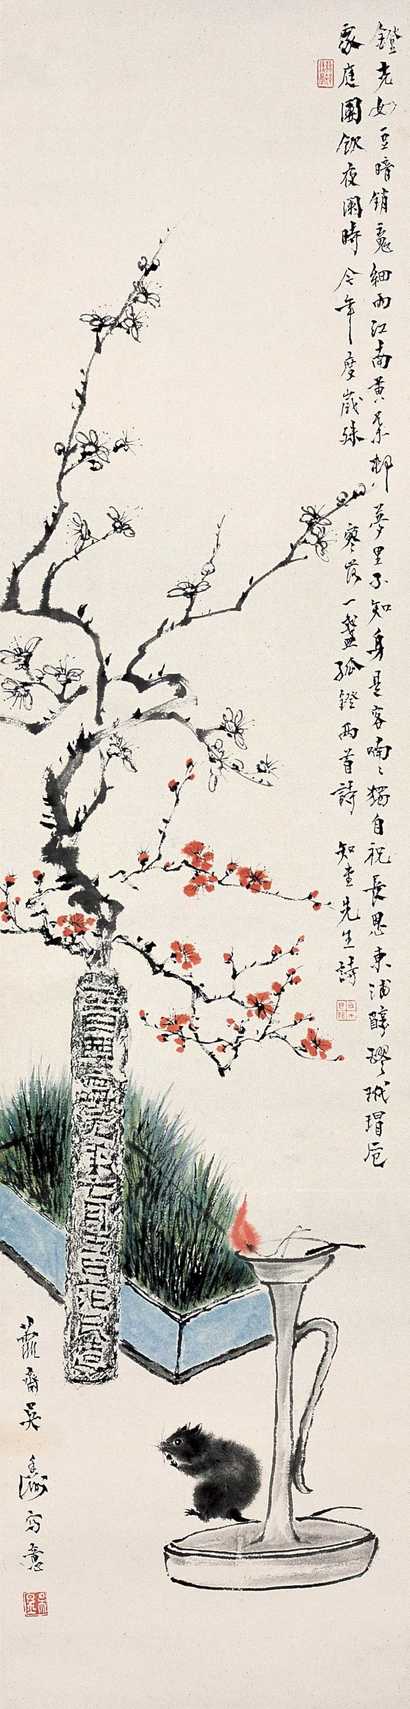 鐙光如豆暗銷魂細雨江南黃葉邨夢里不知身是客喃々獨自祝長恩東浦醇醪玳瑁卮
家庭團飲夜闌時今年度歲殊寥落一盞孤鐙兩首詩 知堂先生詩
齋吳香洲寫意